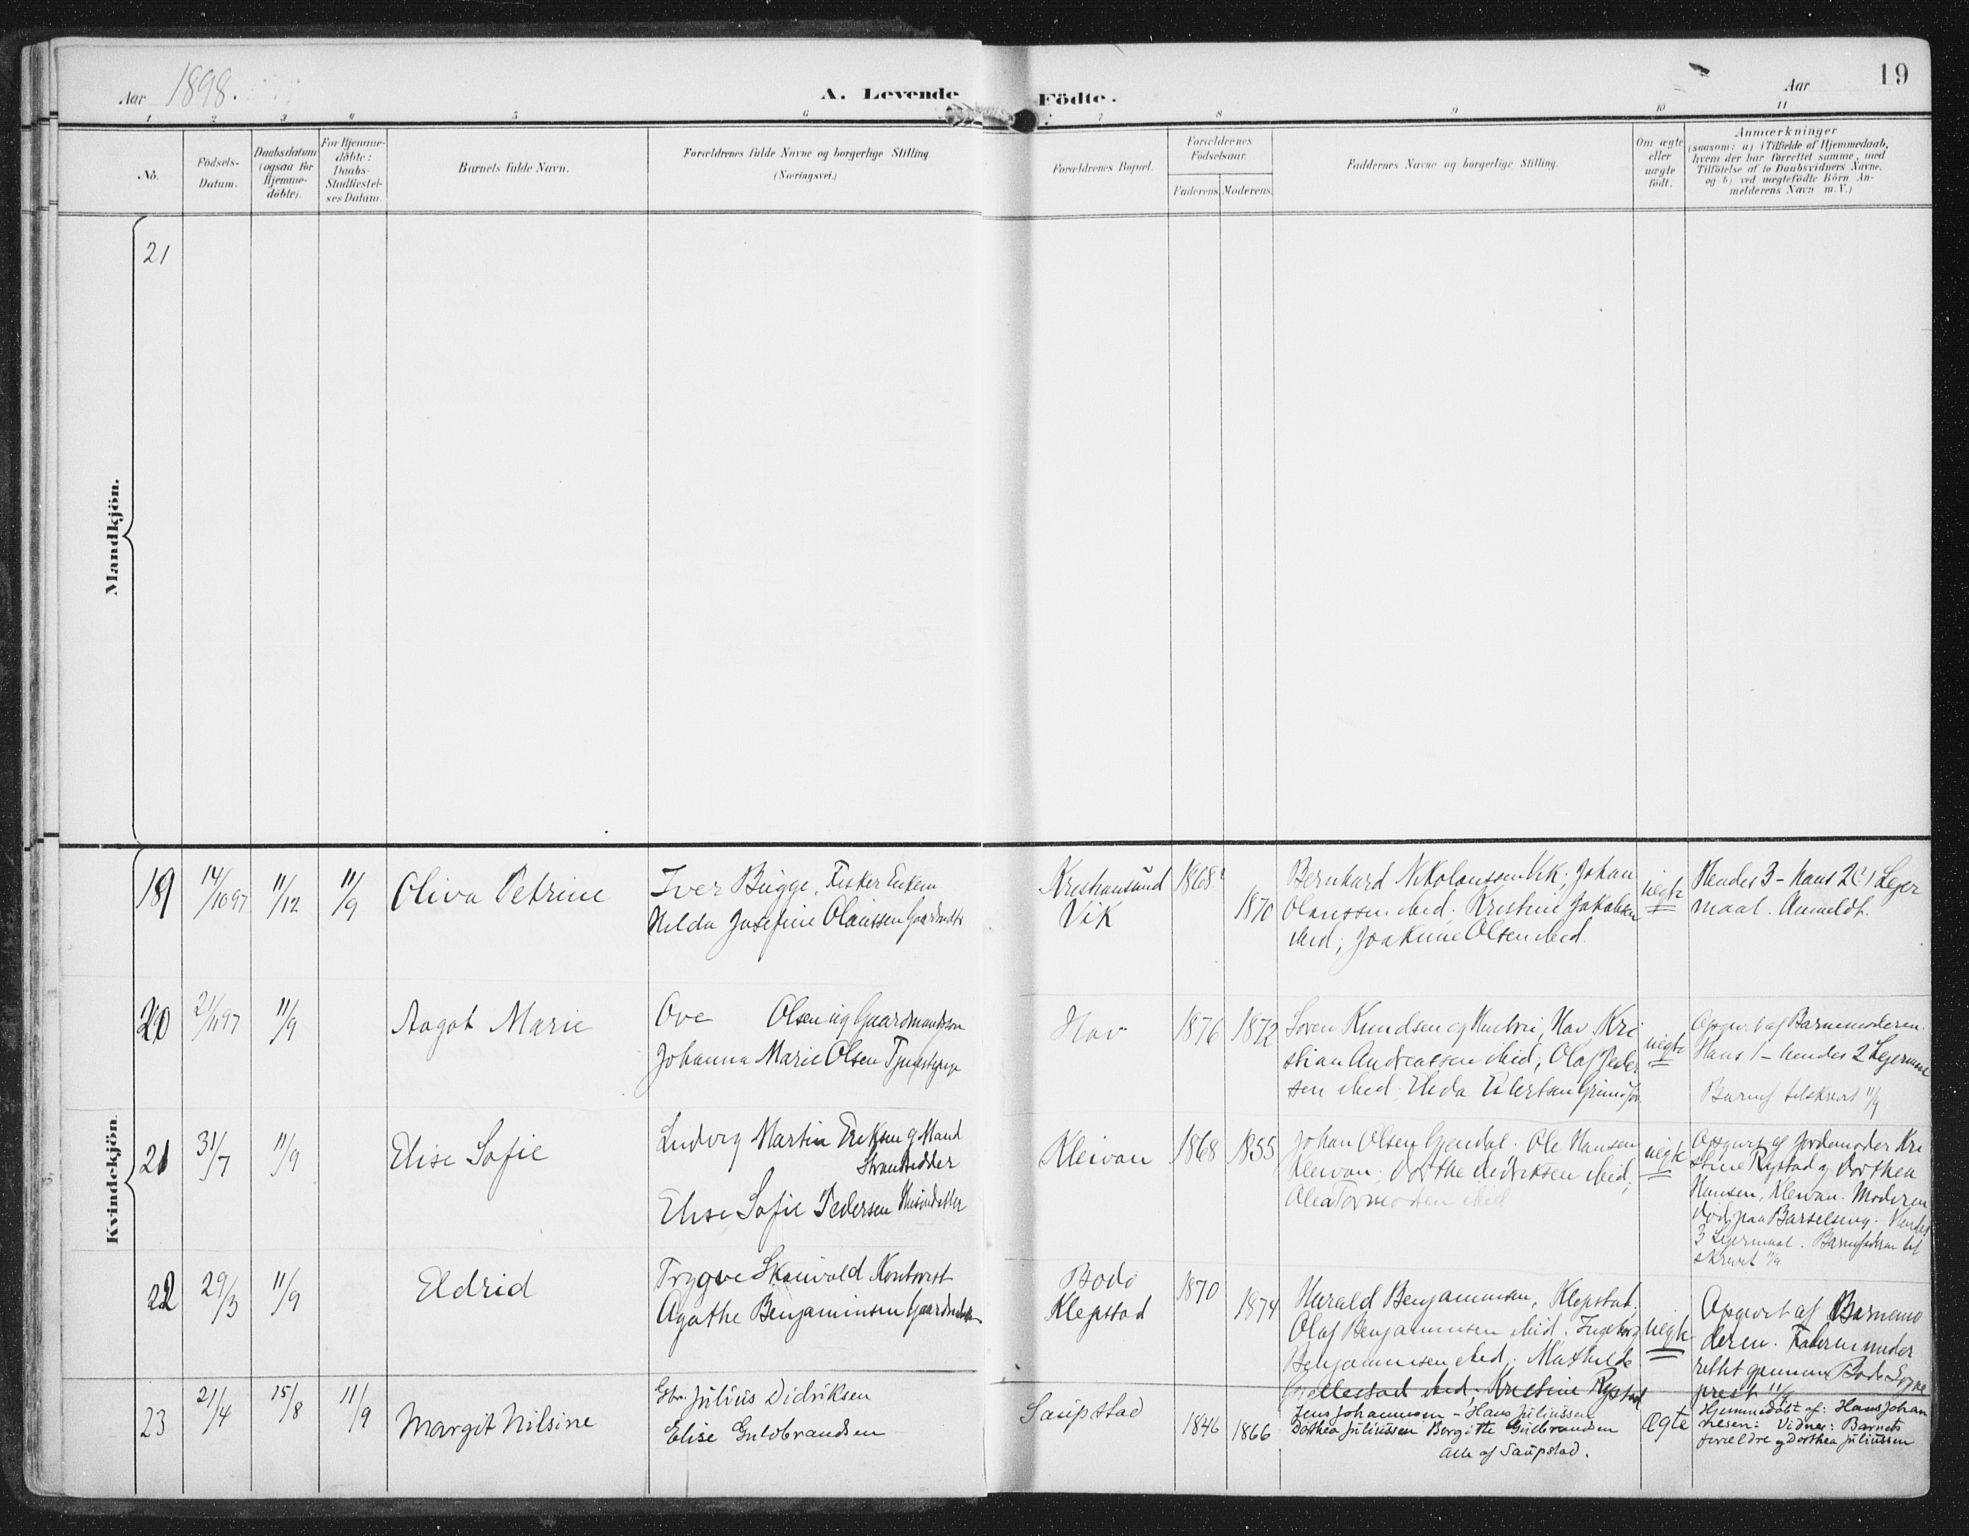 Aar 1898.
A. Levende Födte.
Aar
19
1 2 3 4 5 6 7 8 9 10 11
No.
Födsels-Datum.
Daabsdatum (ogsaa for Hjemmedöbte).
For Hjemmedöbte: Daabs-Stadfæstelses Datum.
Barnets fulde Navn.
Forældrenes fulde Navne og borgerlige Stilling (Næringsvei.)
Forældrenes Bopæl.
Forældrenes Födselsaar.
Faderens. Moderens.
Faddernes Navne og borgerlige Stilling.
Om ægte eller uægte födt.
Anmærkninger
(saasom: a) i Tilfælde af Hjemmedaab,
hvem der har forrettet samme, med
Tilföielse af to Daabsvidners Navne,
og b) ved uægtefödte Börn Anmelderens Navn m. V.)
Mandkjön.
21
Kvindekjön
19 14/10 97 11/12 11/9 Oliva Petrine
Iver Bugge, Fisker Enkem
Hilda Josefine Olaussen Gaardmdtr
Kristiansund
Vik
1868
1870
Bernhard Nikolaussen Vik, Johan
Olaussen ibid, Kristine Jakobsen
ibid, Joakime Olsen ibid.
uegte
Hendes 3 – hans 2 Leier
maal. Anmeldt.
20 21/11 97 11/9 Aagot Marie
Ove Olsen ug Gaardmandssøn
Johanna Marie Olsen
Hov
1876 1872
Søren Knudsen og Hustru, Hov, Kri
stian Andreassen ibid, Olaf Peder
sen ibid, Elida Eilertsen Grimsför
uegte
Opgivet af Barnemoderen.
Hans 1 – hendes 2 Leierm
Barnef tilskrevet 11/9
21 31/7 11/9 Elise Sofie
Ludvig Martin Eriksen g Mand
Strandsidder
Elise Sofie Pedersen
Kleivan
1868 1855
Johan Olsen Gjendal. Ole Hansen
Kleivan, Dorthe Didriksen ibid,
ibid
uegte
Opgivet af Jordemoder Kri
stine Rystad og Dorthea
Hansen, Kleivan. Moderen
död paa Barselseng. Hendes
3 Leiermaal. Barnefaderen til
skrevet 11/9
22 29/3 11/9 Eldrid
Trygve Skauvold Kontorist
Agathe Benjaminsen Gaardmdatter
Bodö
Klepstad
1870
1874
Harald Benjaminsen, Klepstad,
Olaf Benjaminsen ibid, Ingeborg
Benjaminsen ibid, Mathilde
Gjellestad ibid, Kristine Rystad
uegte
Opgivet af Barnemo
deren. Faderen under
rettet gennem Bodö Sogne
prest 11/9
23 21/4 15/8 11/9 Margit Nilsine
Gbr. Julius Didriksen
Elise Guldbrandsen
Saupstad
1846 1866
Jens Johannesen – Hans Juliussen
Dorthea Juliussen Bergitte Guldbrandsen
Alle af Saupstad.
Ægte
Hjemmedøbt af: Hans Johan
nesen: Vidner: Barnets
forældre og Dorthea Juliussen